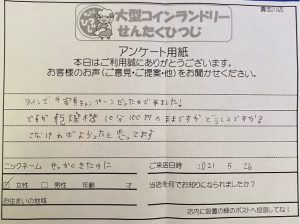 貴志川店
大型コインランドリー
せんたくひつじ
アンケート用紙
本日はご利用誠にありがとうございます。
お客様のお声(ご意見・ご提案・他)をお聞かせください。
ラインで半額キャンペーンだったので来ました!
ですが乾燥機10分100円のままですがどうしてですか?
こなければよかったと思ってます
ニックネーム せっかくきたのに
ご来店日時 2021 5 26
女性 □男性 年齢 才
お住まいの地域
当店を何でお知りになられましたか?
店内に設置の緑のポストへ投函してね!